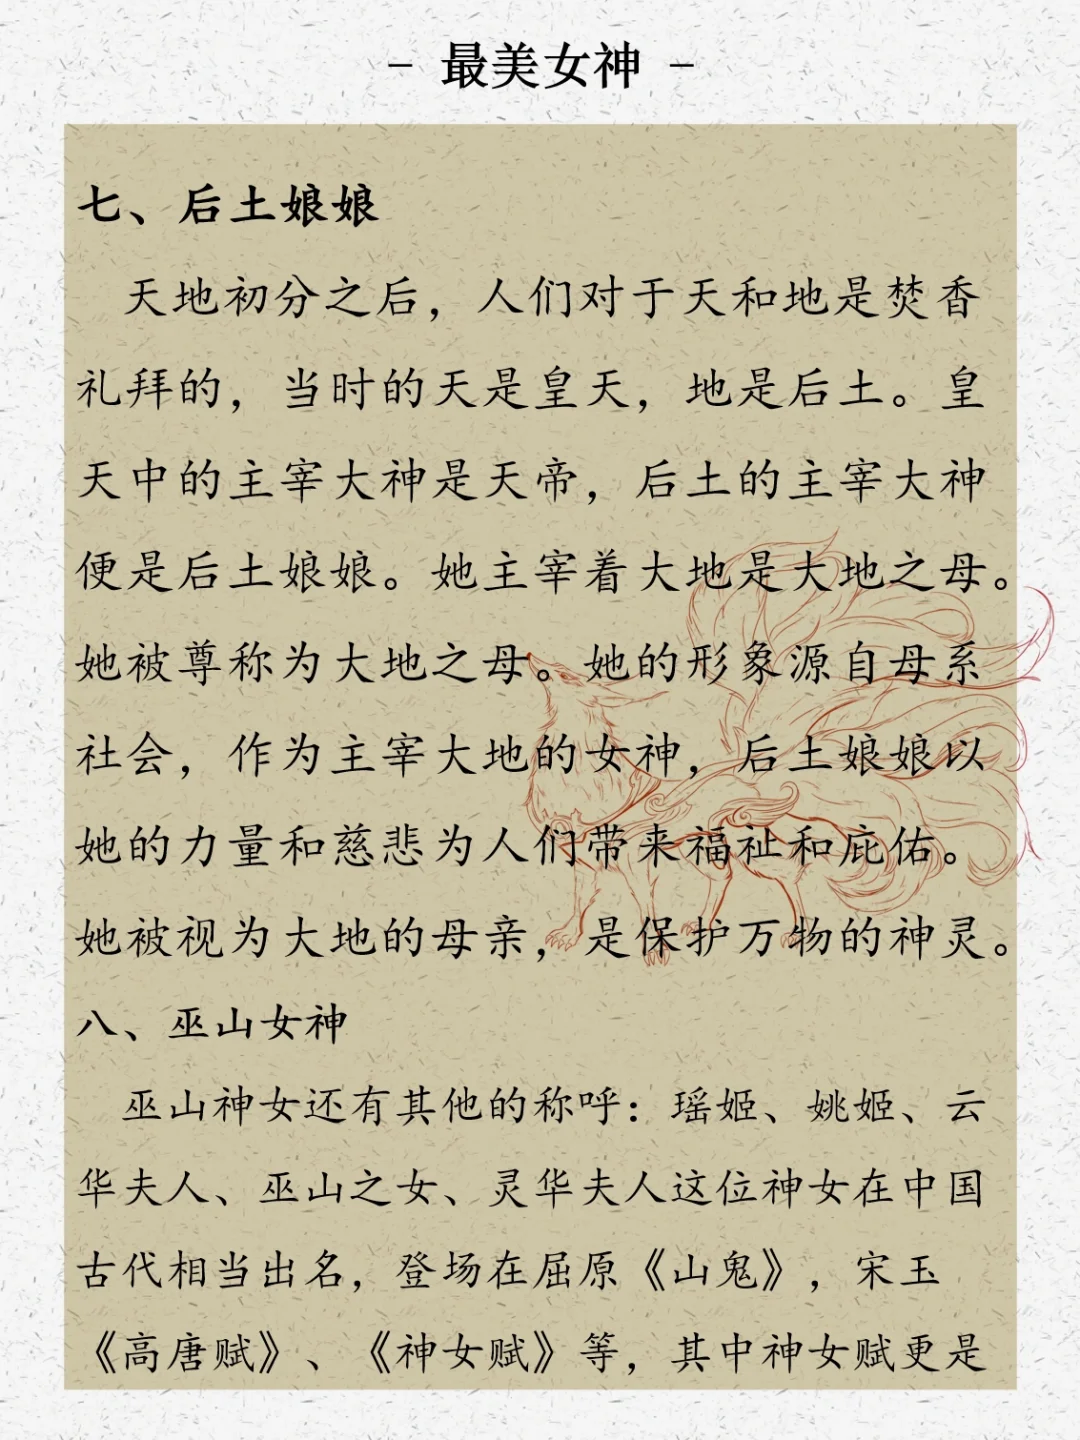 - 最美女神 -
七、后土娘娘
天地初分之后，人们对于天和地是焚香
礼拜的，当时的天是皇天，地是后土。皇
天中的主宰大神是天帝，后土的主宰大神
便是后土娘娘。她主宰着大地是大地之母。
她被尊称为大地之母。她的形象源自母系
社会，作为主宰大地的女神，后土娘娘以
她的力量和慈悲为人们带来福祉和庇佑。
她被视为大地的母亲，是保护万物的神灵。
八、巫山女神
巫山神女还有其他的称呼：瑶姬、姚姬、云
华夫人、巫山之女、灵华夫人这位神女在中国
古代相当出名，登场在屈原《山鬼》，宋玉
《高唐赋》、《神女赋》等，其中神女赋更是